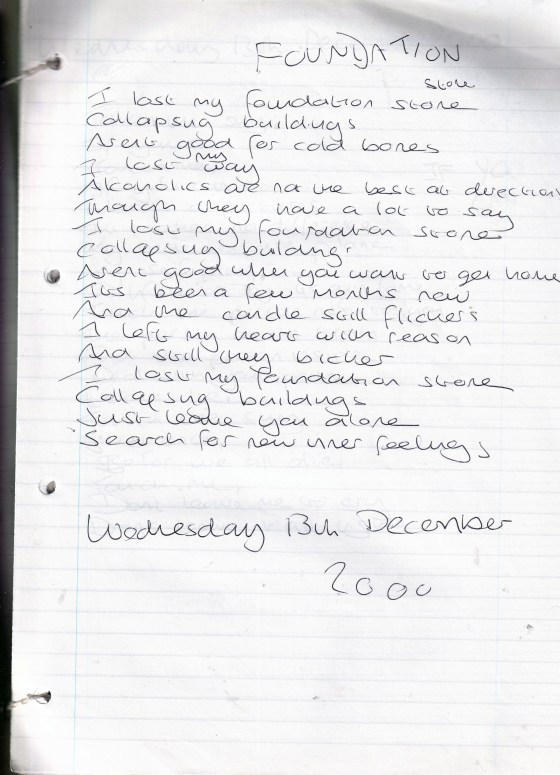 FOUNDATION
stone
I lost my foundation stone
Collapsing buildings
Arent good for cold bones
I lost my way
Alcoholics are not the best at direction
Though they have a lot to say
I lost my foundation stone
Collapsing buildings
Arent good when you want to get home
Its been a few months now
And the candle still flickers
I left my heart with reason
And still they bicker
I lost my foundation stone
Collapsing buildings
Just leave you alone
Search for new inner feelings
Wednesday 13th December
2000